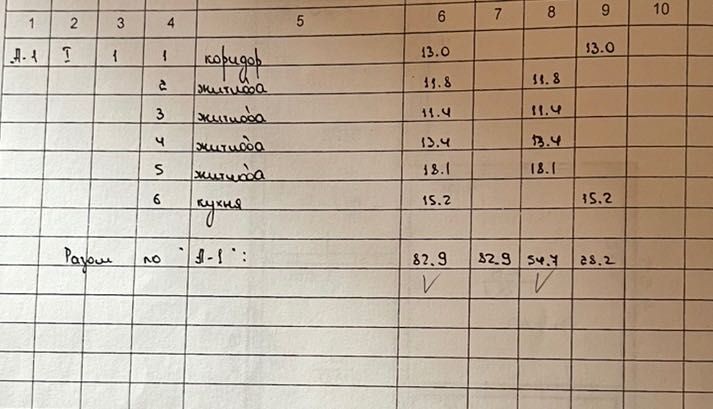 1 2 3 4 5 6 7 8 9 10
А-1 I 1 1 коридор 13.0 13.0
2 житлова 11.8 11.8
3 житлова 11.4 11.4
4 житлова 13.4 13.4
5 житлова 18.1 18.1
6 кухня 15.2 15.2
Разом по "А-1": 82.9 82.9 54.7 28.2